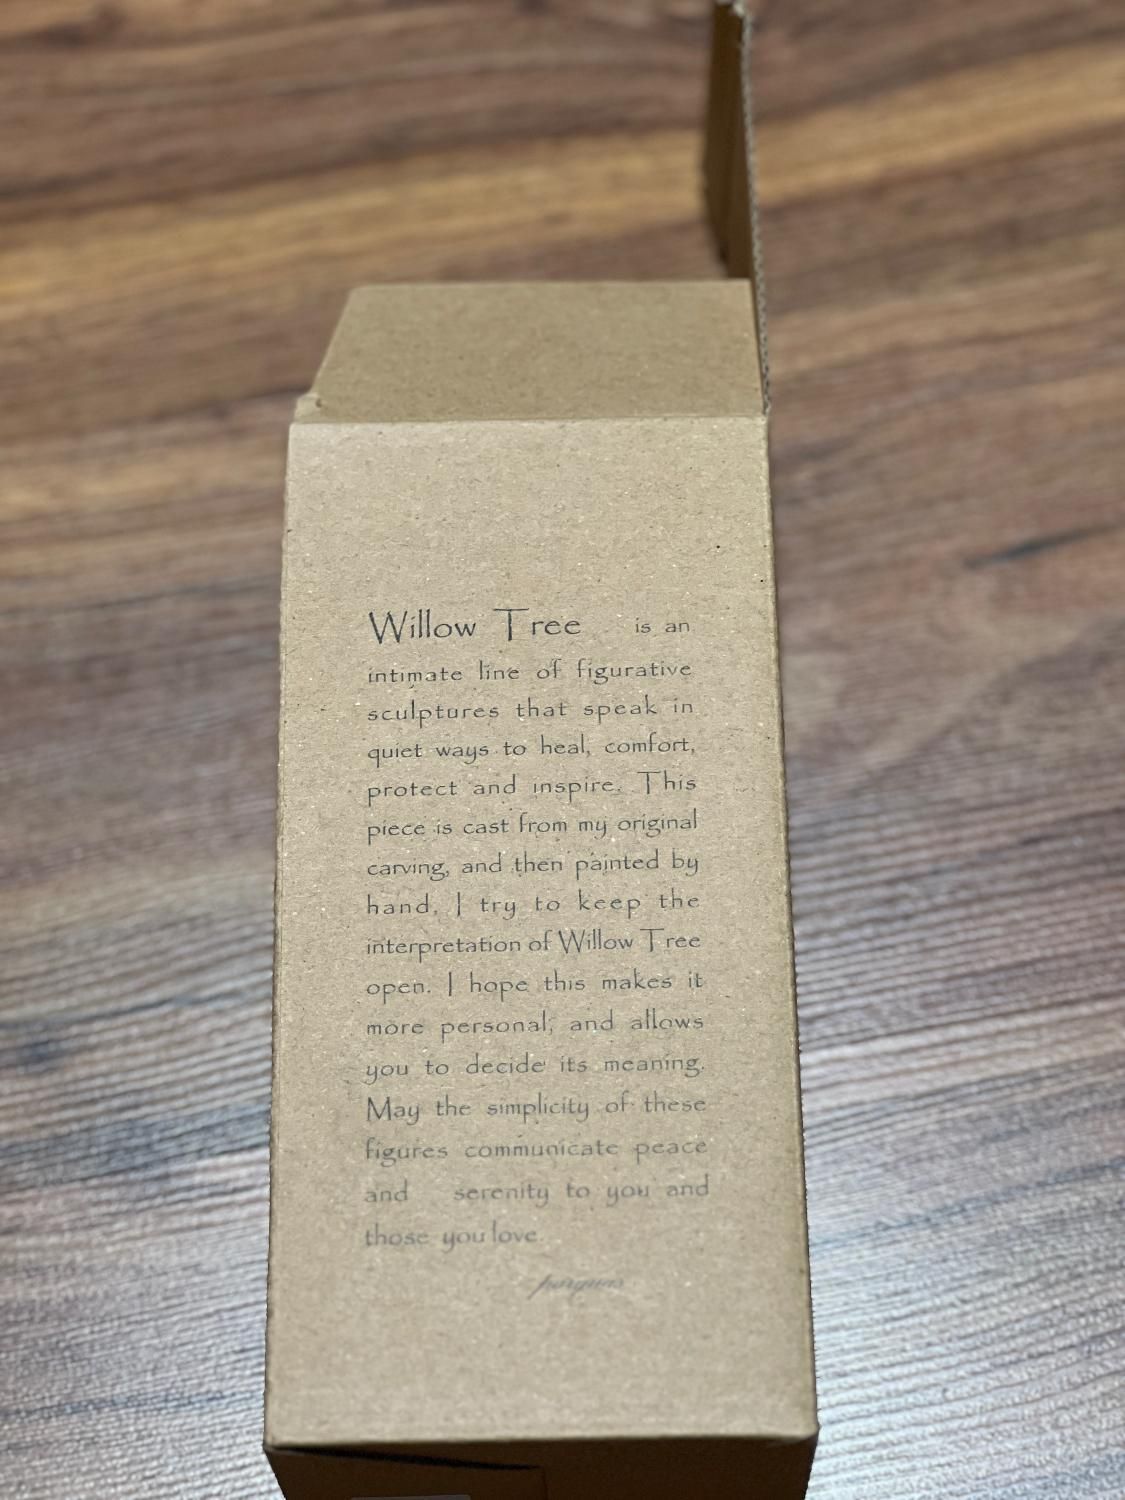 Willow Tree is an
intimate line of figurative
sculptures that speak in
quiet ways to heal, comfort,
protect and inspire. This
piece is cast from my original
carving, and then painted by
hand. I try to keep the
interpretation of Willow Tree
open. I hope this makes it
more personal, and allows
you to decide its meaning.
May the simplicity of these
figures communicate peace
and serenity to you and
those you love.